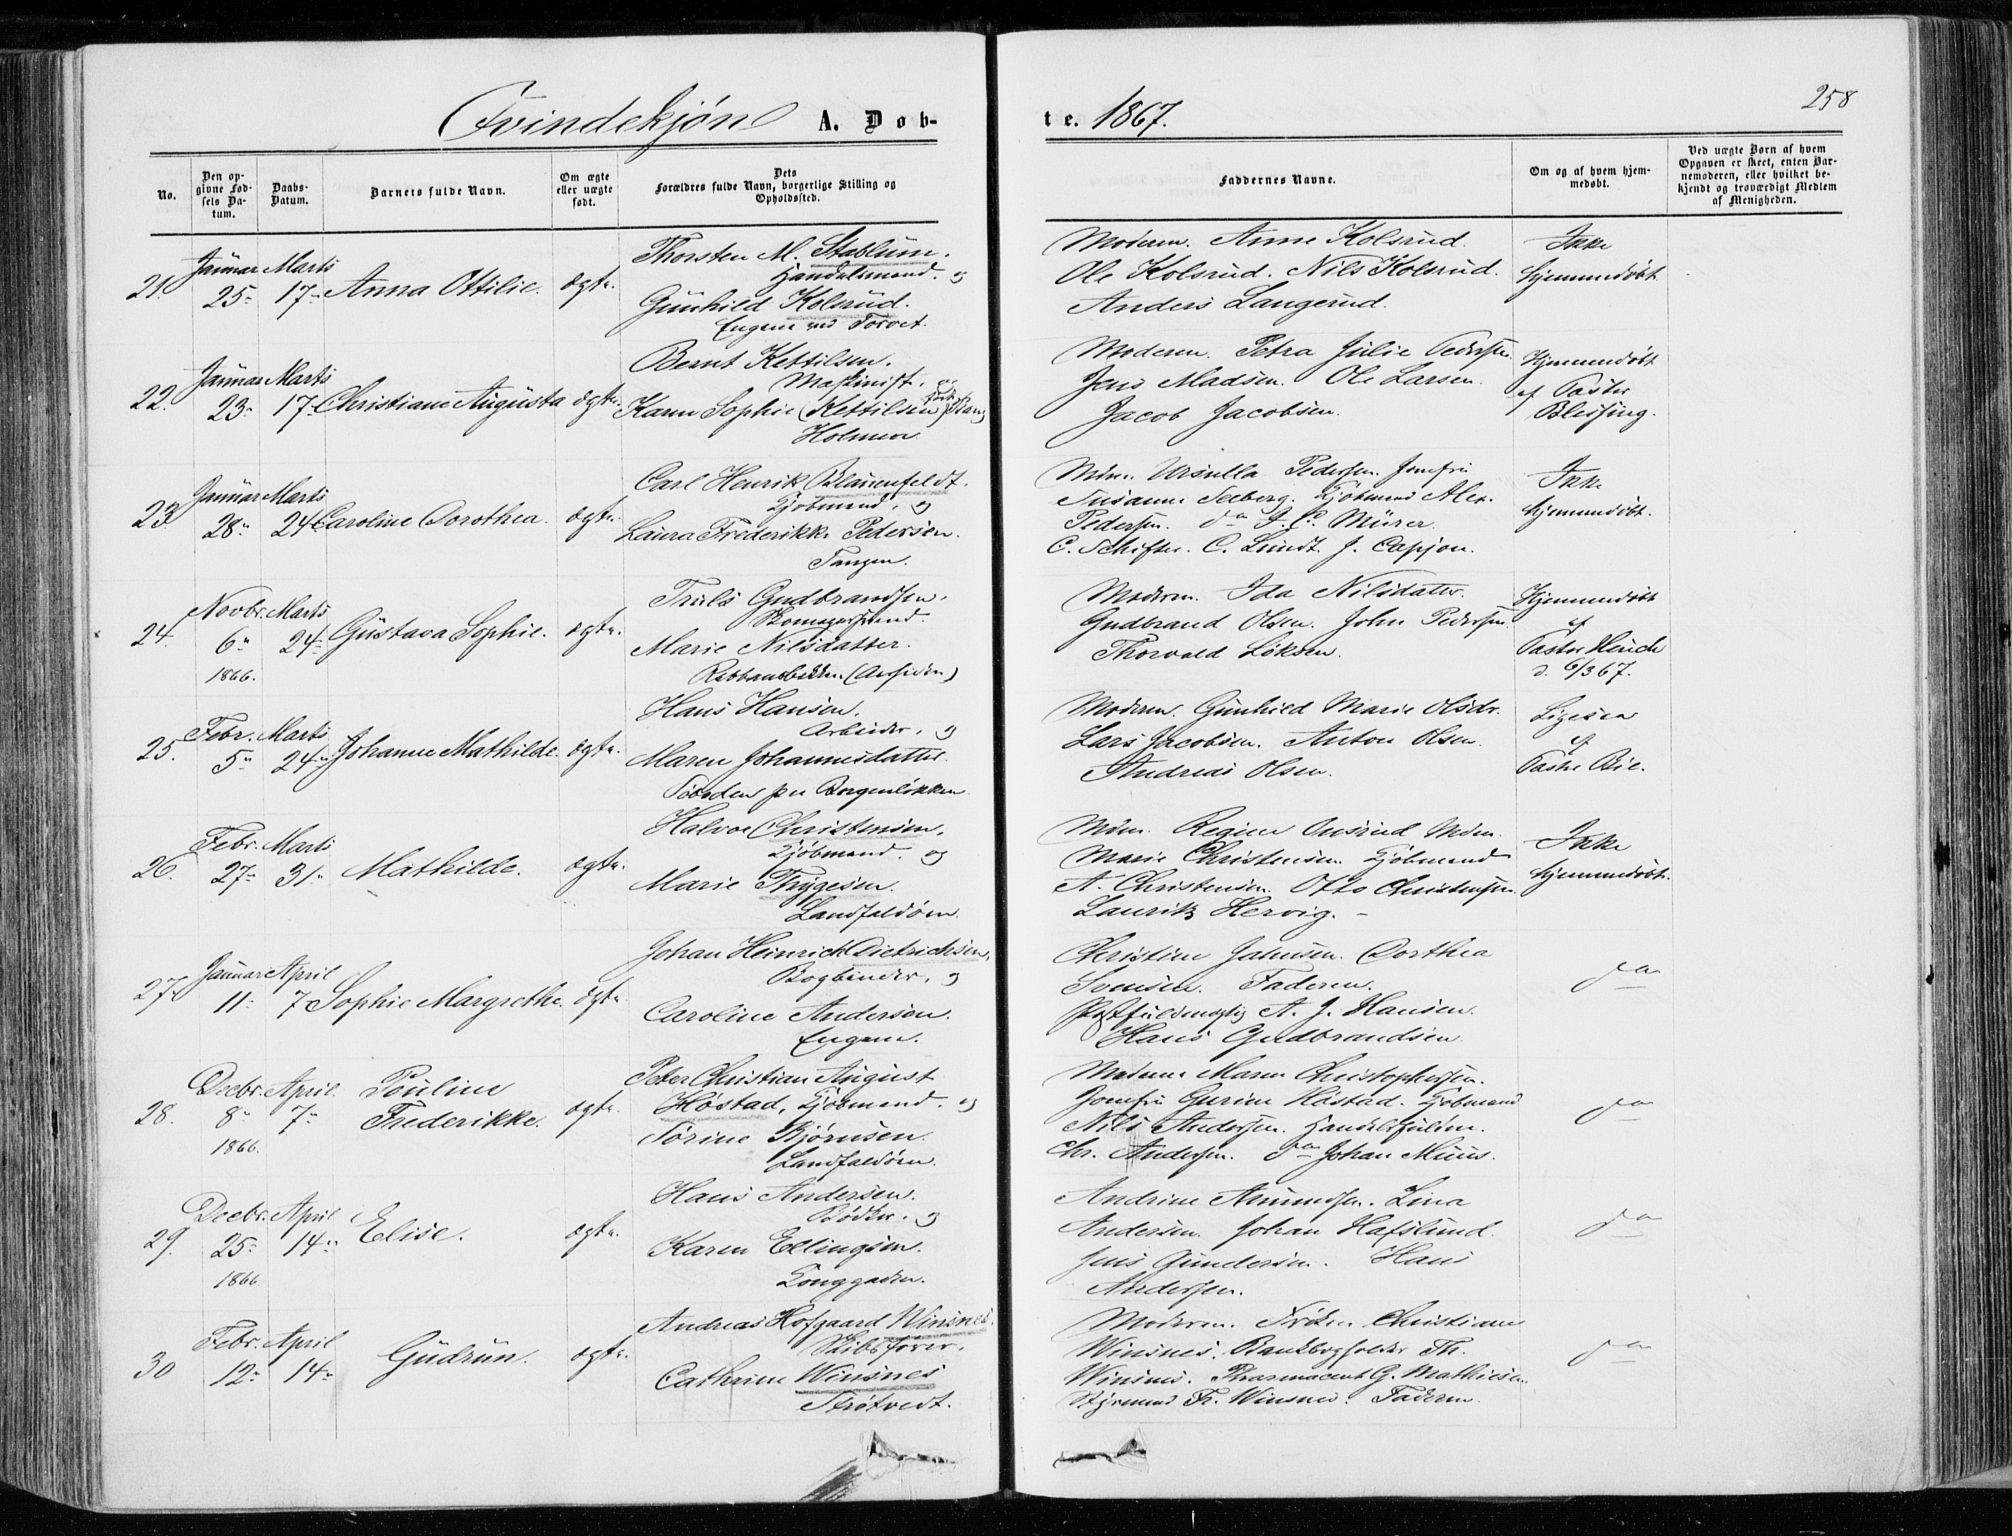 Qvindekjøn A. Døb-
te. 1867.
258
No.
Den op-
givne Fød-
sels Da-
tum.
Daabs-
Datum.
Barnets fulde Navn.
Om ægte
eller uægte
født.
Dets
Forældres fulde Navn, borgerlige Stilling og
Opholdssted.
Faddernes Navne.
Om og af hvem hjem-
medøbt.
Ved uægte Børn af hvem
Opgaven er skeet, enten Bar-
nemoderen, eller hvilket be-
kjendt og troværdigt Medlem
af Menigheden.
21. Januar 25 Marts 17 Anna Ottilie. ægte.
Thorsten M. Stablum.
Handelsmand. og
Gunhild Kolsrud.
Engene ved Torvet.
Moderen. Anne Kolsrud.
Ole Kolsrud. Nils Kolsrud.
Anders Langerud.
Ikke
hjemmedøbt.
22. Januar 23 Marts 17 Christiane Augusta ægte.
Bernt Kettilsen.
Maskinist. og
Karen Sophie (Kettilsen født
Holmen
Moderen. Petra Julie Pedersen.
Jens Madsen. Ole Larsen.
Jacob Jacobsen.
Hjemmedøbt
af Pastor
Blessing.
23. Januar 28 Marts 24 Caroline Dorothea. ægte.
Carl Henrik Blauenfeldt.
Kjøbmand. og
Laura Frederikke Pedersen.
Tangen.
Mdm. Ursulla Pedersen. Jomfru
Susanne Seeberg. Kjøbmand Alex.
Pedersen. do J. C. Mürer.
C. Schifter. C. Lundt. J. Capjon.
Ikke
hjemmedøbt.
24. Novbr. 6 1866. Marts 24 Gustava Sophie. ægte.
Truls Gudbrandsen.
Skomagersvend.
Marie Nilsdatter.
Moderen. Ida Nilsdatter.
Gudbrand Olsen. John Pedersen.
Thorvald Løksen.
Hjemmedøbt
af
Pastor Heuch
d. 6/3 67.
25. Febr. 5 Marts 24 Johanne Mathilde. ægte.
Hans Hansen.
Arbeider. og
Maren Johannesdatter.
Moderen. Gunhild Marie Olsdr.
Lars Jacobsen. Anton Olsen.
Andreas Olsen.
Ligesaa
af
Pastor Bie.
26. Febr. 27 Marts 31 Mathilde. ægte.
Halvor Christensen.
Kjøbmand. og
Marie Thygesen.
Landfaldøen.
Mdm. Regine Mdm.
Marie Christensen. Kjøbmand
A. Christensen. Otto Christensen.
Lauritz Hervig.
Ikke
hjemmedøbt.
27. Januar 11 April 7 Sophie Margrethe. ægte.
Johan Heinrich Dietrichsen.
Bogbinder. og
Caroline Andersen.
Engene.
Christine Jahnsen. Dorthea
Svensen. Faderen.
Postfuldmægtig A. J. Hansen.
Hans Gudbrandsen.
do
28. Decbr. 8 1866. April 7 Pouline
Frederikke. ægte.
Peter Christian August
Høstad, Kjøbmand. og
Torine Bjørnsen.
Landfaldøen.
Madame Maren Christophersen.
Jomfru Gurine Høstad. Kjøbmand
Nils Andersen. Handelsfuldm.
Chr. Andersen. do Johan Muus.
do
29. Decbr. 25 1866. April 14 Elise. ægte.
Hans Andersen.
Bødker. og
Karen Ellingsen.
Konggaden.
Andrine Amundsen. Lina
Andersen. Johan Hafslund.
Jens Gundersen. Hans
Andersen.
do
30 Febr. 12 April 14 Gudrun. ægte.
Andreas Hofgaard Winsnes.
Skibsfører.
Cathrine Winsnes
Strøtvedt.
Moderen. Frøken Christiane
Winsnes. Bankbogholder Th.
Winsnes. Pharmaceut G. Mathiesen.
Styrmand Fr. Winsnes. Faderen.
do